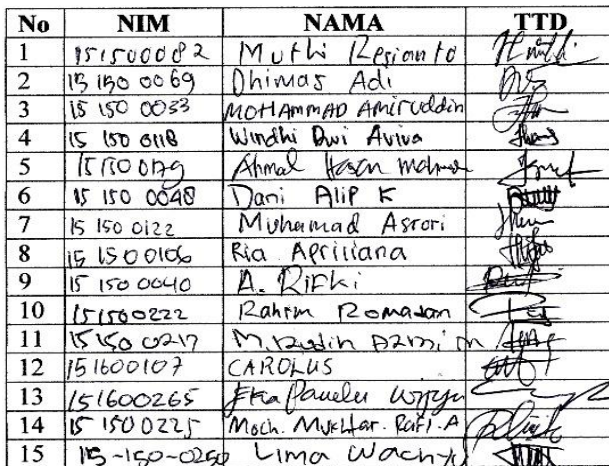 No NIM NAMA TTD
1 151500082 Muthi
2 15 150 0069 Dhimas Adi
3 15 150 0033 MOHAMMAD Amiruddin
4 15 150 0118 Windhi Dwi Aviva
5 Ahmad Hasan
6 15 150 0048 Dani Alip K
7 15 150 0122 Muhamad Asrori
8 15 150 0106 Ria Apriliana
9 15 150 0040 A. Rifki
10 151500222 Rahim Romadan
11 15 150 0217 M.
12 151600107 CAROLUS
13 151600265 Eka
14 15 150 0225 Moch. Mukhtar. Rafi. A
15 15-150-0250 Lima